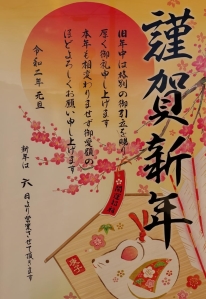 謹賀新年
旧年中は格別の御引立を賜り
厚く御礼申し上げます
本年も相変わりませず御愛顧の
ほどよろしくお願い申し上げます
令和二年 元旦
新年は 六 日より営業させて頂きます
庚子